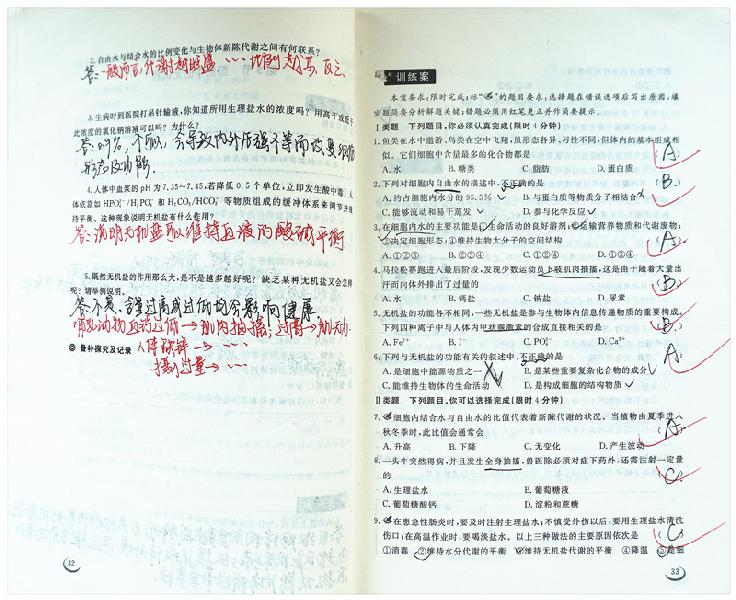 2.自由水与结合水的比例变化与生物体新陈代谢之间有何联系?
答:一般而言,代谢越旺盛 … 比例越高,反之.
3.生病时到医院打吊针输液,你知道所用生理盐水的浓度吗?用高于或低于
此浓度的氯化钠溶液可以吗?为什么?
4.人体中血浆的pH为7.35~7.45,若降低0.5个单位,立即发生酸中毒。人
体依靠如HPO₄²⁻/H₂PO₄⁻和H₂CO₃/HCO₃⁻等物质组成的缓冲体系来调节并维
持平衡。这种现象说明无机盐有什么作用?
答:说明无机盐可以维持血液的酸碱平衡
5.既然无机盐的作用那么大,是不是越多越好呢?缺乏某种无机盐又会怎样
呢?请举例说明。
答:不是,含量过高或过低均会影响健康.
哺乳动物血钙过低→肌肉抽搐;过高→肌无力.
◎ 普补探究及记录 人体缺锌→ …
摄入过量→ …
32
训练案
1.鱼类在水中遨游,鸟类在空中飞翔,虽形态各异、习性不同,但体内的基本组成相
似。它们细胞中含量最多的化合物都是 A
A.水 B.糖类 C.脂肪 D.蛋白质
2.下列对细胞内自由水的叙述中,不正确的是 B
A.约占细胞内水分的95.5% B.与蛋白质等物质分子相结合
C.能够流动和易于蒸发 D.参与化学反应
3.在细胞内水的主要功能是①生命活动的良好溶剂;②运输营养物质和代谢废物;
③决定细胞形态;④维持生物大分子的空间结构 A
4.马拉松赛跑进入最后阶段,发现少数运动员下肢肌肉抽搐,这是由于随着大量出
汗而向体外排出了过量的 B
A.水 B.钙盐 C.钠盐 D.尿素
5.无机盐的功能各不相同,一些无机盐是参与生物体内信息传递物质的重要构成。
下列四种离子中与人体内甲状腺激素的合成直接相关的是 B
A.Fe²⁺ B.I⁻ C.PO₄³⁻ D.Ca²⁺
6.下列与无机盐的功能有关的叙述中,不正确的是 A
A.是细胞中能源物质之一 B.是某些重要复杂化合物的成分
C.能维持生物体的生命活动 D.是构成细胞的结构物质
Ⅱ类题 下列题目,你可以选择完成(限时4分钟)
7.细胞内结合水与自由水的比值代表着新陈代谢的状况。当植物由夏季进入
秋冬季时,此比值会通常会 A
A.升高 B.下降 C.无变化 D.产生波动
8.一头牛突然得病,并且发生全身抽搐,兽医除必须对症下药外,还需注射一定量
的 C
A.生理盐水 B.葡萄糖液
C.葡萄糖酸钙 D.淀粉和蔗糖
9.在患急性肠炎时,要及时注射生理盐水;不慎受外伤以后,要用生理盐水清洗
伤口;在高温作业时,要喝淡盐水。以上三种做法的主要原因依次是 C
①消毒 ②维持水分代谢的平衡 ③维持无机盐代谢的平衡 ④降温 ⑤是细
33